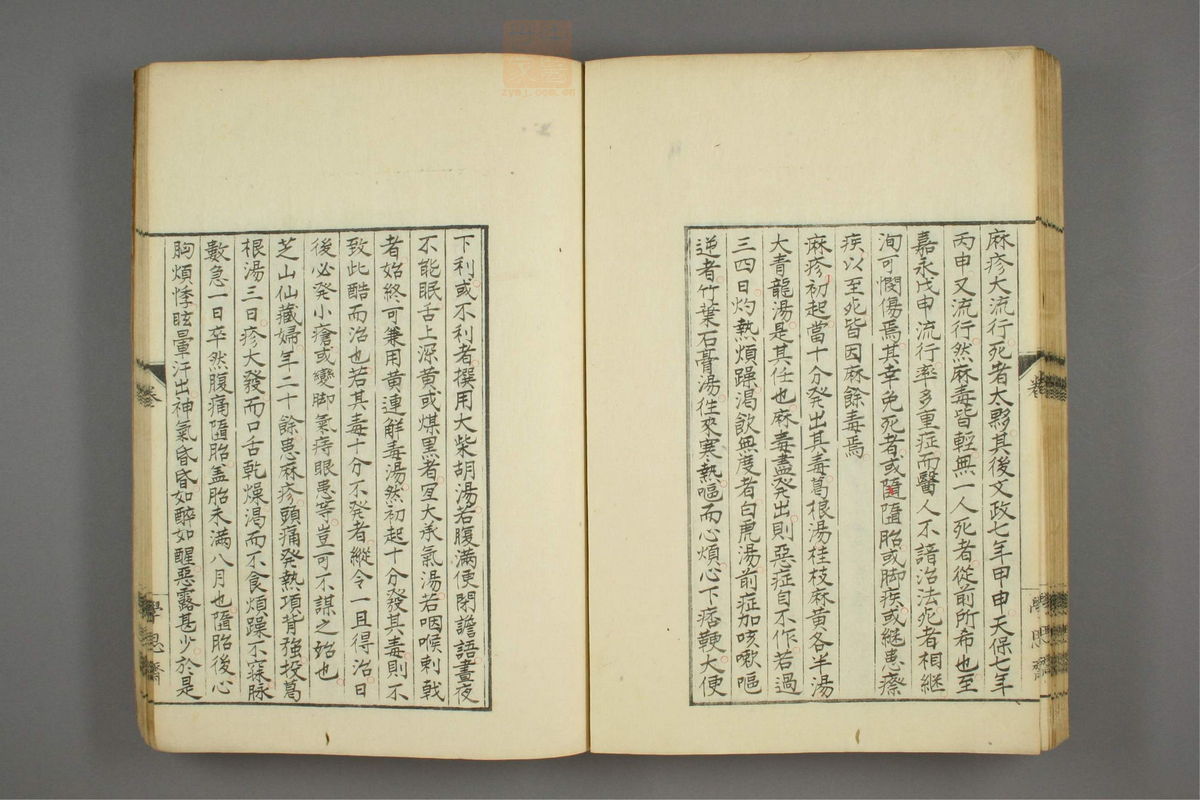 麻疹大流行死者太夥其後文政七年甲申天保七年
丙申又流行然麻毒皆輕無一人死者從前所希也至
嘉永戊申流行率多重症而醫人不諳治法死者相繼
洵可憫傷焉其幸免死者或隨墮胎或脚疾或継患瘵
疾以至死皆因麻餘毒焉
麻疹初起當十分発出其毒葛根湯桂枝麻黄各半湯
大青龍湯是其任也麻毒盡発出則惡症自不作若過
三四日灼熱煩躁渇飲無度者白虎湯前症加咳嗽嘔
逆者竹葉石膏湯徃來寒熱嘔而心煩心下痞鞕大便
下利或不利者撰用大柴胡湯若腹満便閉譫語晝夜
不能眠舌上深黄或煤黒者冝大承氣湯若咽喉刺戟
者始終可兼用黄連解毒湯然初起十分發其毒則不
致此酷而治也若其毒十分不発者縱令一旦得治日
後必発小瘡或變脚氣痔眼患等豈可不謀之始也
芝山仙藏婦年二十餘患麻疹頭痛発熱項背强投葛
根湯三日疹大發而口舌乾燥渇而不食煩躁不寐脉
數急一日卒然腹痛墮胎盖胎未満八月也墮胎後心
胸煩悸眩暈汗出神氣昏昏如醉如醒惡露甚少於是
卷
學思齋
zysj.com.cn